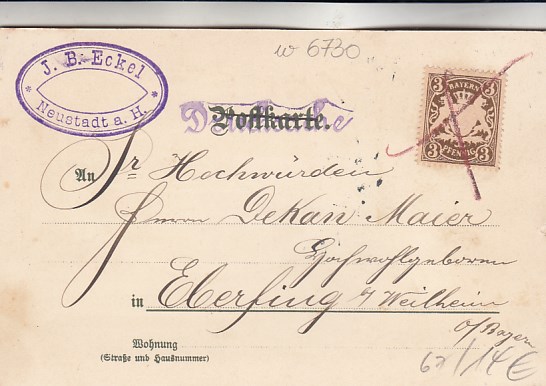 J. B. Eckel
* Neustadt a. H. *
w 6730
3 BAYERN 3
3 PFENNIG 3
Drucksache
Postkarte.
An Sr Hochwürden
Herrn Dekan Maier
Hochwohlgeboren
in Eberfing b/ Weilheim
o/Bayern
Wohnung
(Straße und Hausnummer)
14 €